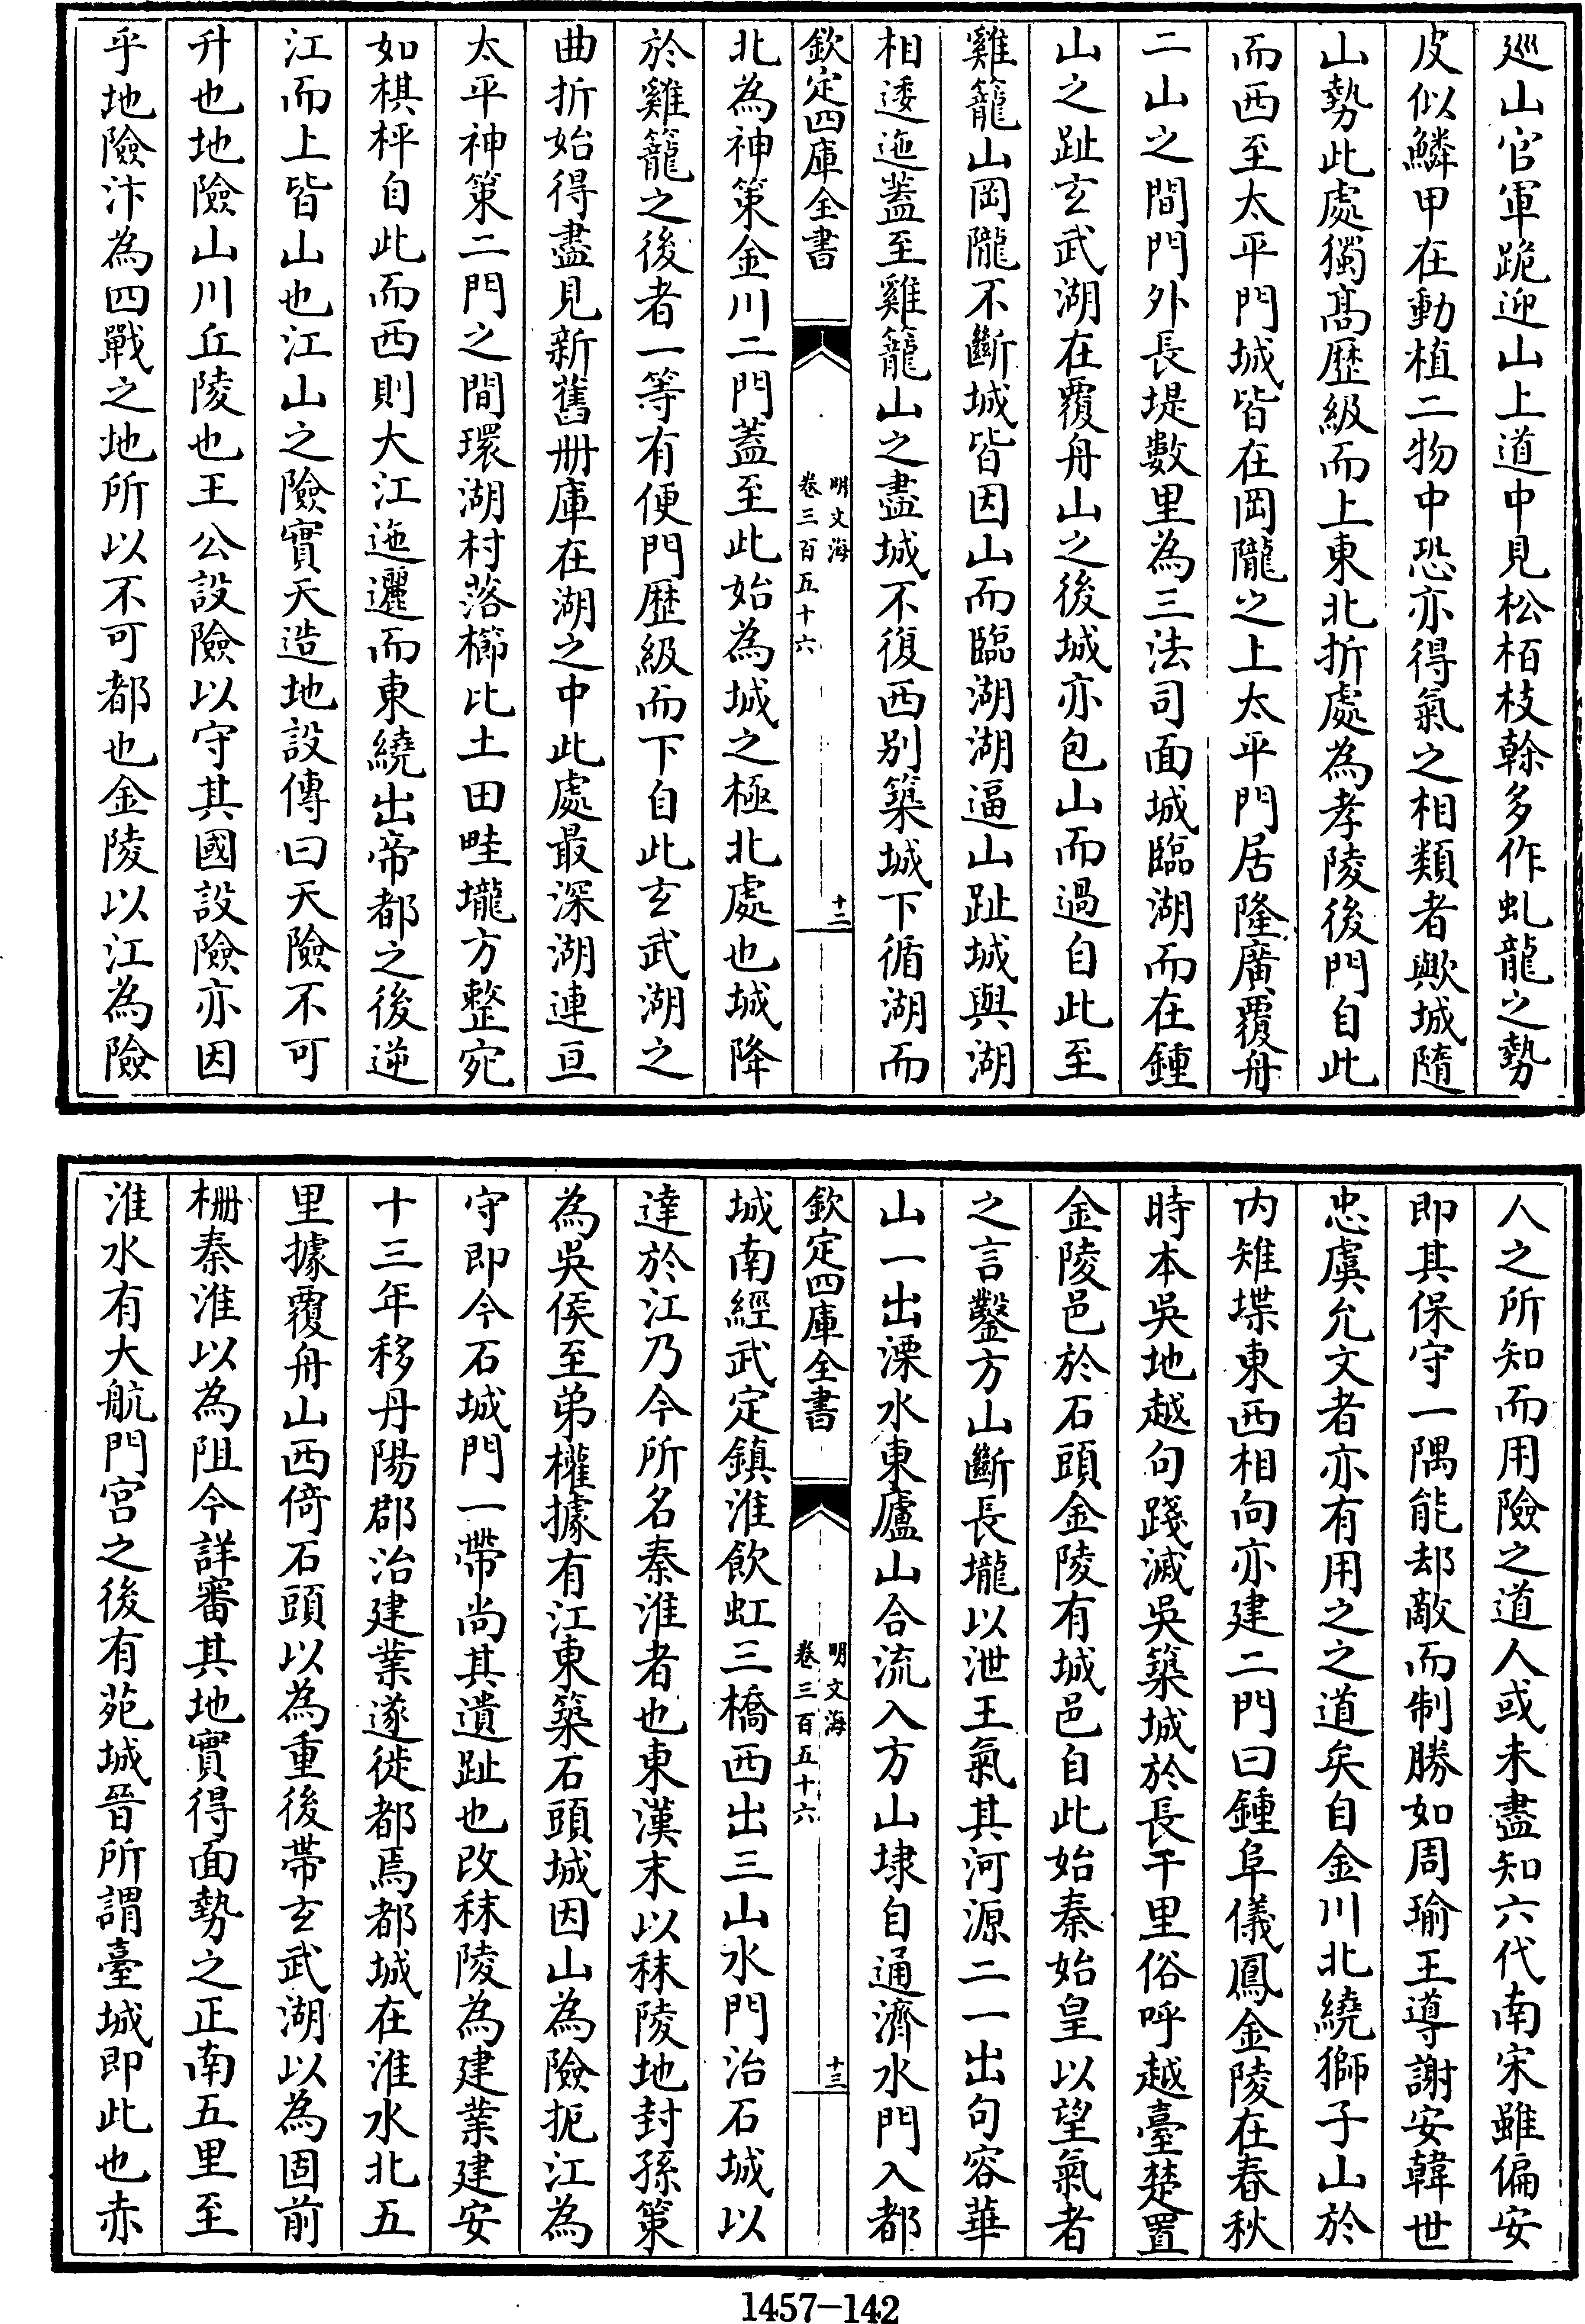 巡山官軍跪迎山上道中見松栢枝榦多作虬龍之勢
皮似鱗甲在動植二物中恐亦得氣之相類者歟城隨
山勢此處獨髙歴級而上東北折處為孝陵後門自此
而西至太平門城皆在岡隴之上太平門居隆廣覆舟
二山之間門外長堤數里為三法司面城臨湖而在鍾
山之趾玄武湖在覆舟山之後城亦包山而過自此至
雞籠山岡隴不斷城皆因山而臨湖湖逼山趾城與湖
相逶迤蓋至雞籠山之盡城不復西别築城下循湖而
欽定四庫全書
明文海
卷三百五十六
十二
北為神策金川二門蓋至此始為城之極北處也城降
於雞籠之後者一等有便門歴級而下自此玄武湖之
曲折始得盡見新舊册庫在湖之中此處最深湖連亘
太平神策二門之間環湖村落櫛比土田畦壠方整宛
如棋枰自此而西則大江迤邐而東繞出帝都之後逆
江而上皆山也江山之險實天造地設傳曰天險不可
升也地險山川丘陵也王公設險以守其國設險亦因
乎地險汴為四戰之地所以不可都也金陵以江為險
人之所知而用險之道人或未盡知六代南宋雖偏安
即其保守一隅能却敵而制勝如周瑜王導謝安韓世
忠虞允文者亦有用之之道矣自金川北繞獅子山於
内雉堞東西相向亦建二門曰鍾阜儀鳳金陵在春秋
時本吳地越句踐滅吳築城於長干里俗呼越臺楚置
金陵邑於石頭金陵有城邑自此始秦始皇以望氣者
之言鑿方山斷長壠以泄王氣其河源二一出句容華
山一出溧水東廬山合流入方山埭自通濟水門入都
欽定四庫全書
明文海
卷三百五十六
十三
城南經武定鎮淮飲虹三橋西出三山水門治石城以
達於江乃今所名秦淮者也東漢末以秣陵地封孫策
為吳侯至弟權據有江東築石頭城因山為險扼江為
守即今石城門一帶尚其遺趾也改秣陵為建業建安
十三年移丹陽郡治建業遂徙都焉都城在淮水北五
里據覆舟山西倚石頭以為重後帶玄武湖以為固前
柵秦淮以為阻今詳審其地實得面勢之正南五里至
淮水有大航門宫之後有苑城晉所謂臺城即此也赤
1457-142